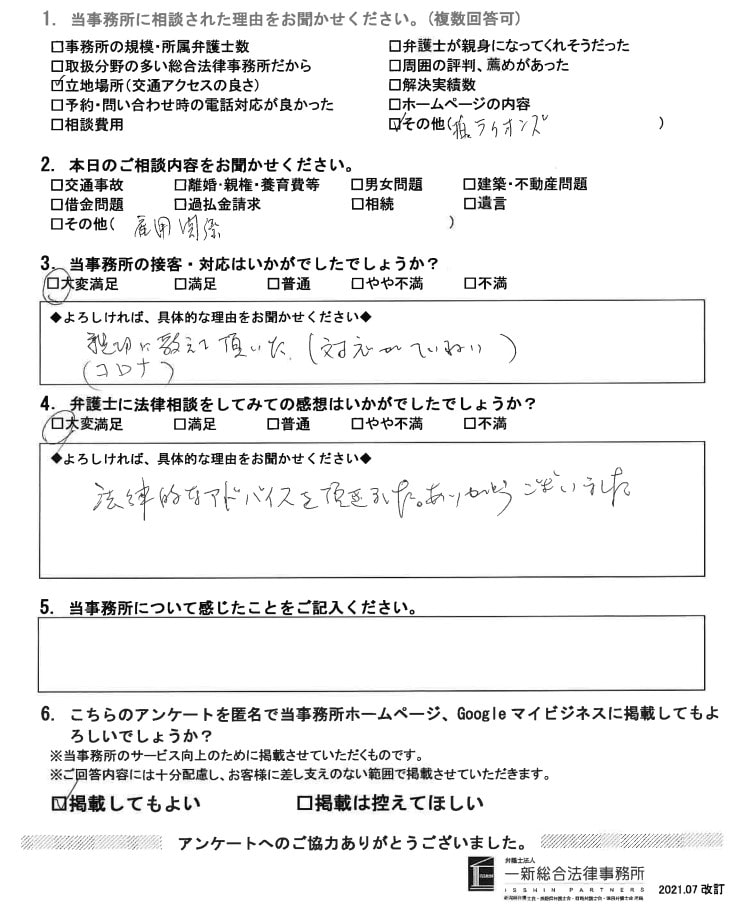 1. 当事務所に相談された理由をお聞かせください。(複数回答可)
□事務所の規模・所属弁護士数 □弁護士が親身になってくれそうだった
□取扱分野の多い総合法律事務所だから □周囲の評判、薦めがあった
☑立地場所(交通アクセスの良さ) □解決実績数
□予約・問い合わせ時の電話対応が良かった □ホームページの内容
□相談費用 ☑その他( ライオンズ )
2. 本日のご相談内容をお聞かせください。
□交通事故 □離婚・親権・養育費等 □男女問題 □建築・不動産問題
□借金問題 □過払金請求 □相続 □遺言
□その他( 雇用関係 )
3. 当事務所の接客・対応はいかがでしたでしょうか?
□大変満足 □満足 □普通 □やや不満 □不満
◆よろしければ、具体的な理由をお聞かせください◆
親切に教えて頂いた。(対応がていねい)
(コロナ)
4. 弁護士に法律相談をしてみての感想はいかがでしたでしょうか?
□大変満足 □満足 □普通 □やや不満 □不満
◆よろしければ、具体的な理由をお聞かせください◆
法律的なアドバイスを頂きました。ありがとうございました
5. 当事務所について感じたことをご記入ください。
6. こちらのアンケートを匿名で当事務所ホームページ、Googleマイビジネスに掲載してもよ
ろしいでしょうか?
※当事務所のサービス向上のために掲載させていただくものです。
※ご回答内容には十分配慮し、お客様に差し支えのない範囲で掲載させていただきます。
☑掲載してもよい □掲載は控えてほしい
アンケートへのご協力ありがとうございました。
弁護士法人
一新総合法律事務所
ISSHIN PARTNERS
2021.07 改訂